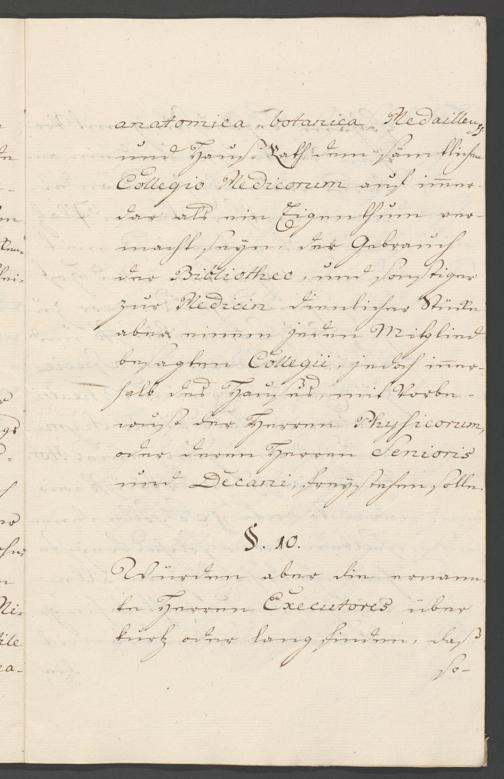 anatomica, botanica, Medaillen,
und Hauß Rath, dem sämtlichen
Collegio Medicorum auf immer-
dar als ein Eigenthum ver-
macht seyn. der Gebrauch
der Bibliothec, und sonstiger
zur Medicin dienlicher Stücke
aber einem jeden Mitglied
besagten Collegii, jedoch inner-
halb des Haußes, mit Vorbe-
wußt der Herren Physicorum,
oder deren Herren Senioris
und Decani, freystehen solle.
§. 10.
Würden aber die ernann-
te Herren Executores über
kurtz oder lang finden, daß
so-